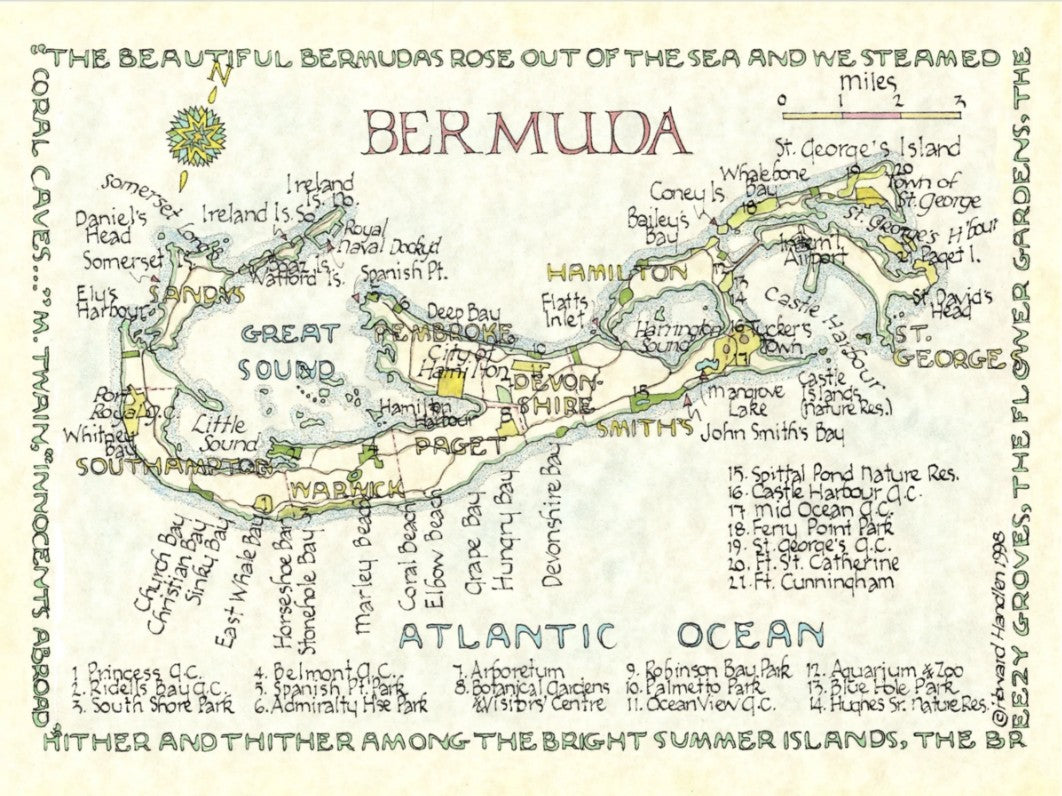 "THE BEAUTIFUL BERMUDAS ROSE OUT OF THE SEA AND WE STEAMED
HITHER AND THITHER AMONG THE BRIGHT SUMMER ISLANDS, THE BR
EEZY GROVES, THE FLOWER GARDENS, THE
CORAL CAVES... " M. TWAIN, "INNOCENTS ABROAD"
N
BERMUDA
miles
0 1 2 3
St. George's Island
Somerset
Long B.
Ireland
Is. No.
Ireland Is. So.
Royal
Naval Dockyd
Daniel's
Head
Somerset Is.
Watford Is.
Spanish Pt.
Ely's
Harbour
SANDYS
GREAT
SOUND
Deep Bay
PEMBROKE
City of
Hamilton
Hamilton
Harbour
Little
Sound
Port
Royal G.C.
Whitney
Bay
SOUTHAMPTON
WARWICK
PAGET
DEVON-
SHIRE
SMITH'S
HAMILTON
Flatts
Inlet
Harrington
Sound
Tucker's
Town
Coney Is
Bailey's
Bay
Whalebone
Bay
Town of
St. George
St. George's H'bour
Paget I.
Internl.
Airport
St. David's
Head
Castle Harbour
ST.
GEORGE
Castle
Islands
(Nature Res.)
Mangrove
Lake
John Smith's Bay
Church Bay
Christian Bay
Sinky Bay
East Whale Bay
Horseshoe Bay
Stonehole Bay
Marley Beach
Coral Beach
Elbow Beach
Grape Bay
Hungry Bay
Devonshire Bay
ATLANTIC OCEAN
15. Spittal Pond Nature Res.
16. Castle Harbour G.C.
17 Mid Ocean G.C.
18. Ferry Point Park
19. St. George's G.C.
20. Ft. St. Catherine
21. Ft. Cunningham
1 Princess G.C.
2. Ridells Bay G.C.
3. South Shore Park
4. Belmont G.C.
5. Spanish Pt. Park
6. Admiralty Hse Park
7. Arboretum
8. Botanical Gardens
& Visitors' Centre
9. Robinson Bay Park
10. Palmetto Park
11. Ocean View G.C.
12. Aquarium & Zoo
13. Blue Hole Park
14. Hughes Sr. Nature Res.
© Harvard Handlen 1998